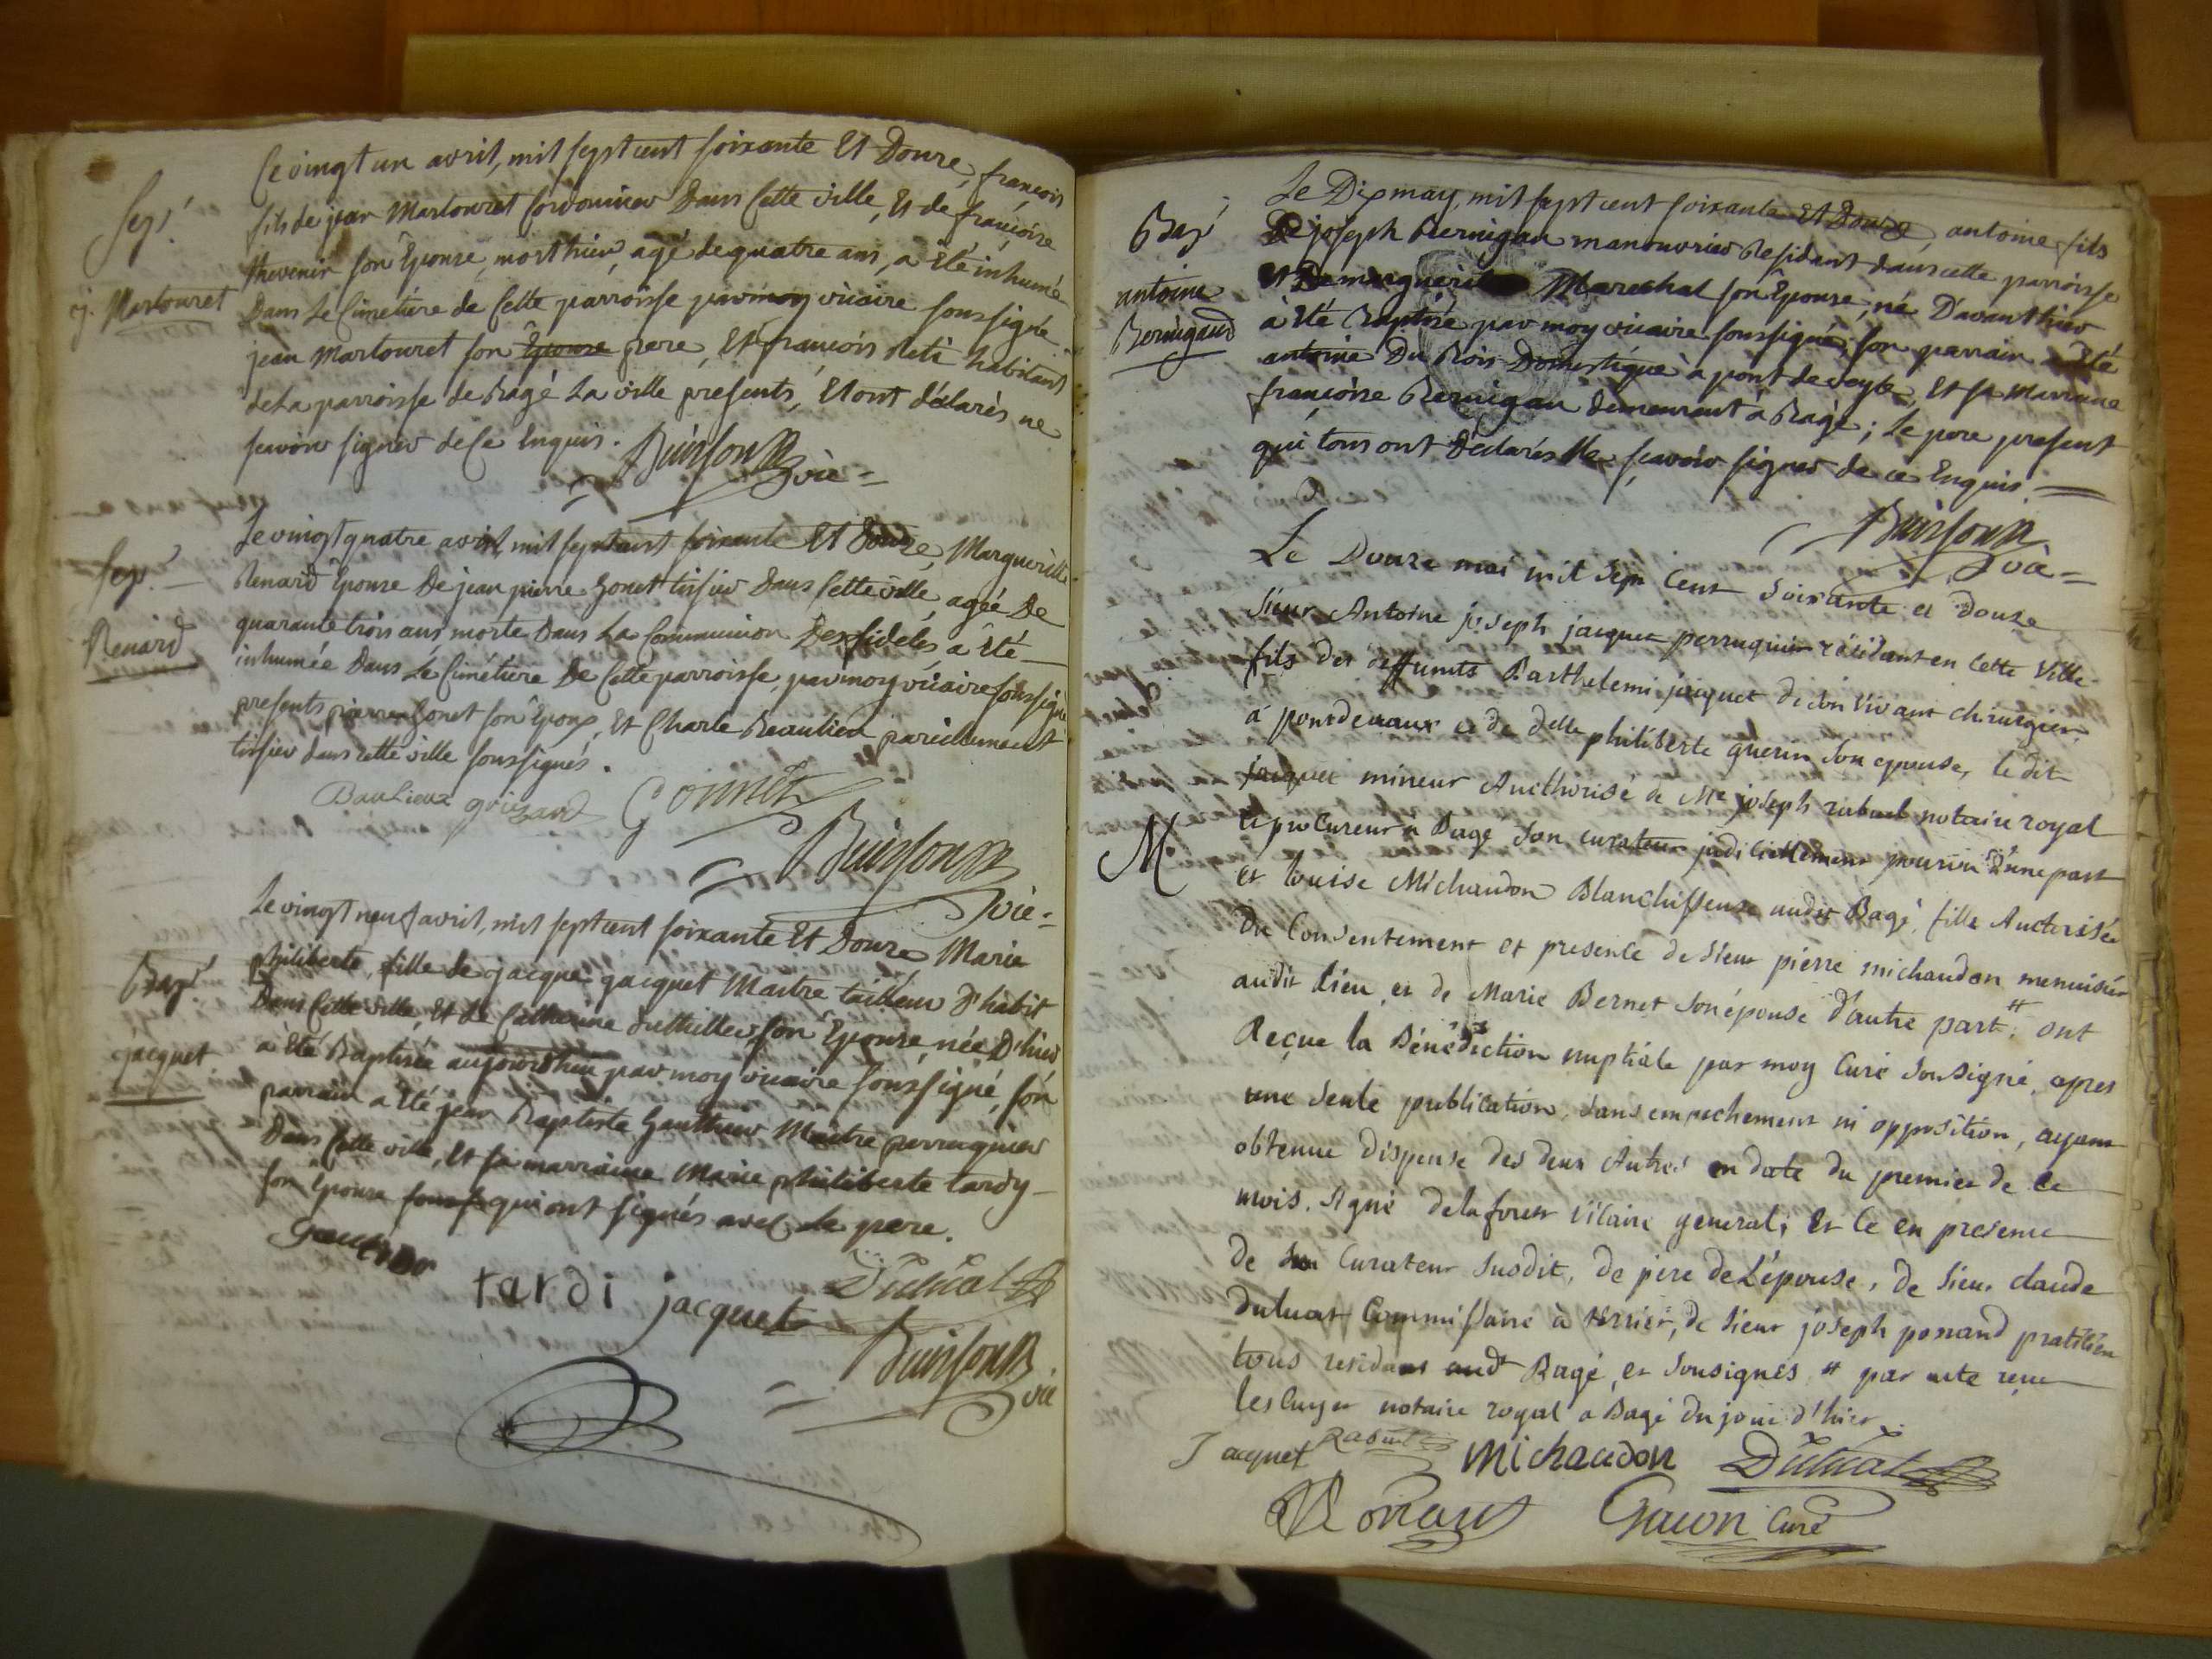 Sep.
j. Martouret
Le vingt un avril, mil sept cent soixante Et Douze, françois
fils de jean Martouret Cordonnier Dans Cette ville, Et de françoise
thevenin son Epouse, mort hier, agé de quatre ans, a été inhumé
Dans Le Cimetière de Cette parroisse par moy vicaire soussigné
jean Martouret son Epouse pere, Et françois habitants
de La parroisse de Bagé La ville presents, Et ont déclarés ne
scavoir signer de Ce Enquis. Buisson
vic =
Sep.
Renard
Le vingt quatre avril, mil sept cent soixante Et Douze, Marguerite
Renard Epouse De jean pierre Gonet tissier Dans Cette ville, agée De
quarante trois ans, morte Dans La Communion Des fidèles, a été
inhumée Dans Le Cimétière De Cette parroisse, par moy vicaire soussigné
presents pierre Gonet son Epoux, Et Charle Beaulieu pareillement
tissier dans cette ville soussignés.
Baulieux Gonnet
Buisson
vic =
Bap.
jacquet
Le vingt neuf avril, mil sept cent soixante Et Douze Marie
philiberte, fille de jacque jacquet Maitre tailleur D'habit
Dans Cette ville, Et de Catherine son Epouse, née D'hier
a été Baptisée aujourdhui par moy vicaire soussigné, son
parrain a été jean Baptiste Gauthier Maitre perruquier
Dans Cette ville, Et sa marraine Marie philiberte tardy
son Epouse qui ont signés avec le pere.
Gautier
tardi jacquet Duluat
Buisson
vic
Bap.
antoine
Bernigaud
Le Dix may, mil sept cent soixante Et Douze, antoine fils
De joseph Bernigau manouvrier Residant dans cette parroisse
Et De marguerite Marechal son Epouse, né D'avant hier
a été Baptisé par moy vicaire soussigné, son parrain a été
antoine Du Bois Domestique à pont de veyle, Et sa Marraine
françoise Bernigau demeurant à Bagé; Le pere present
qui tous ont Déclarés Ne scavoir signer de ce Enquis. =
Buisson
vic =
M.
Le Douze mai mil sept Cent Soixante et douze
Sieur Antoine joseph jacquet perruquier résidant en Cette Ville
fils des deffunts Barthelemi jacquet de son Vivant chirurgien
à pontdevaux et de delle philiberte guerin son epouse, le dit
jacquet mineur Aucthorisé de Me joseph rabuel notaire royal
et procureur a Bagé son curateur judiciellement pourvu D'une part
et louise Michaudon Blanchisseuse audit Bagé, fille Auctorisée
du Consentement et presence de sieur pierre michaudon menuisier
audit lieu, et de Marie Bernet son épouse d'autre part, # ont
Reçue la Bénédiction nuptiale par moy Curé Sousigné, apres
une seule publication, sans empechement ni opposition, ayant
obtenue dispense des deux Autres en date du premier de ce
mois. signé delaforest vicaire general; Et ce en presence
de son Curateur susdit, de pere de L'épouse, de sieur claude
duluat Commissaire à terrier, de sieur joseph ponand praticien
tous residans audt Bagé, et sousignés # par acte reçu
notaire royal a Bagé du jour d'hier.
Jacquet Rabuel Michaudon Duluat
Gacon Curé